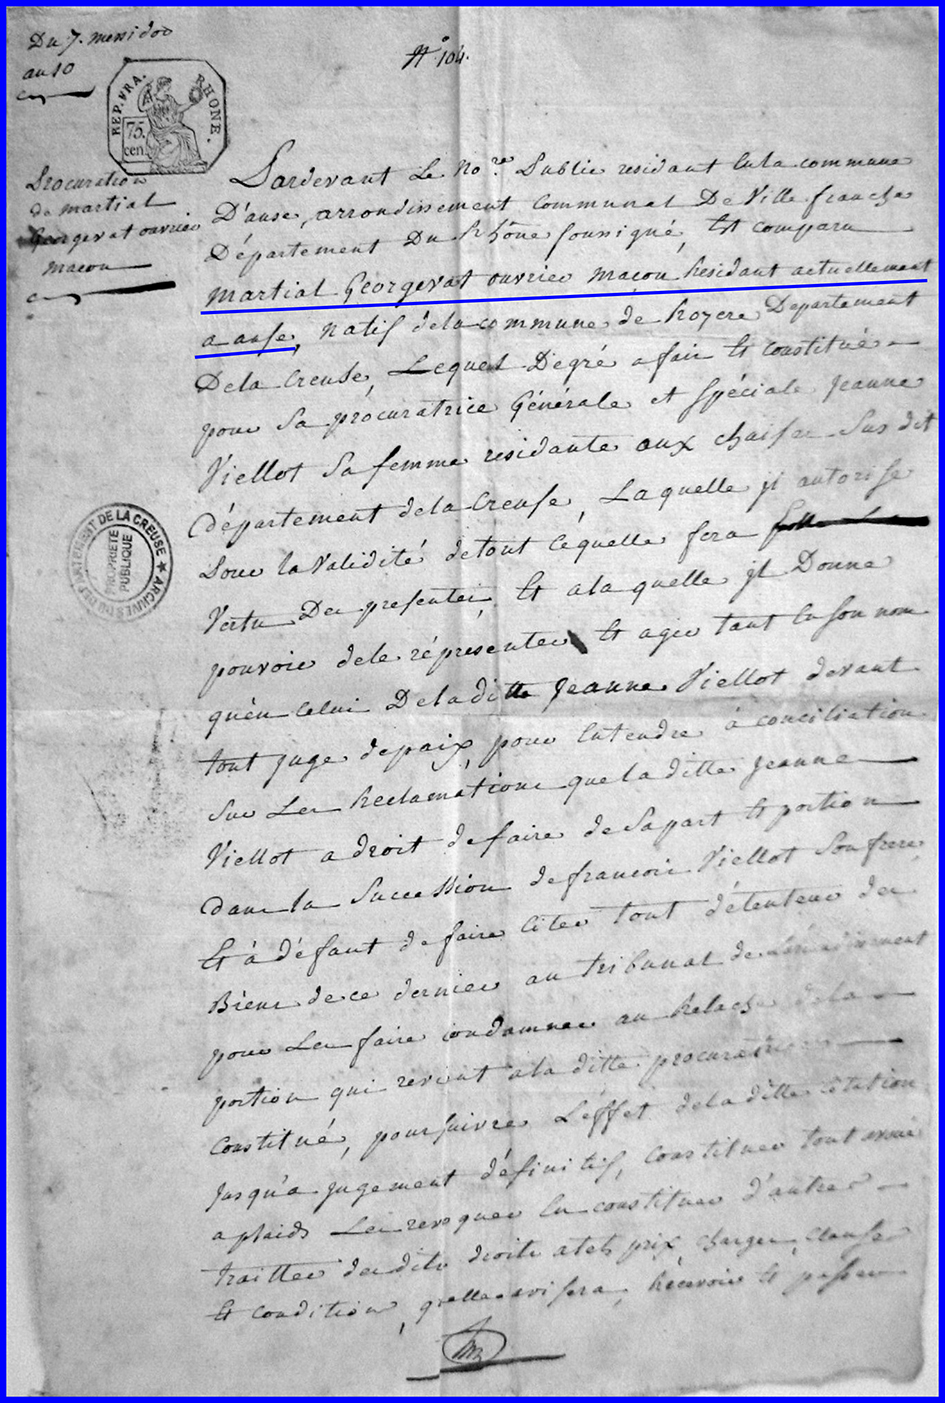 Du 7. messidor
an 10
N° 104.
REP. FRA.
RHONE.
75.
cen.
Procuration
de martial
Georgevat ouvrier
macon
Pardevant Le No.re Public residant en la commune
D'anse, arrondissement communal De Ville franche
Département Du Rhône soussigné, Et comparu
martial Georgevat ouvrier macon Residant actuellement
a anse, natif de la commune de Royere Departement
De la Creuse, Lequel De gré a fait Et constitué
pour Sa procuratrice Générale et spéciale Jeanne
Viellot Sa femme residante aux chaises Sus dit
département de la Creuse, Laquelle jl autorise
Sour la Validité de tout ce quelle fera
Vertu Des presentes, Et a la quelle jl Donne
pouvoir de le réprésenter Et agir tant En son nom
qu'en Celui De la ditte Jeanne Viellot devant
tout juge de paix, pour Entendre à conciliation
Sur Les Reclamations que la ditte Jeanne
Viellot a droit de faire de Sa part Et portion
dans la Succession de francois Viellot Son frere
Et à défaut de faire Citer tout détenteur des
Biens de ce dernier au tribunal de L'arrondissement
pour Les faire condamner au Relache de la
portion qui revient a la ditte procuratrice
Constitué, poursuivre L'éffet de la ditte Citation
Jusqu'a jugement définitif, Constituer tout avoué
a plaids Les revoquer En constituer d'autres
traitter des dits droits a tels prix, charges, clauses
Et condition, quelle avisera, Recevoir Et passer
DEPARTEMENT DE LA CREUSE ★ ARCHIVES DU
PROPRIETE
PUBLIQUE